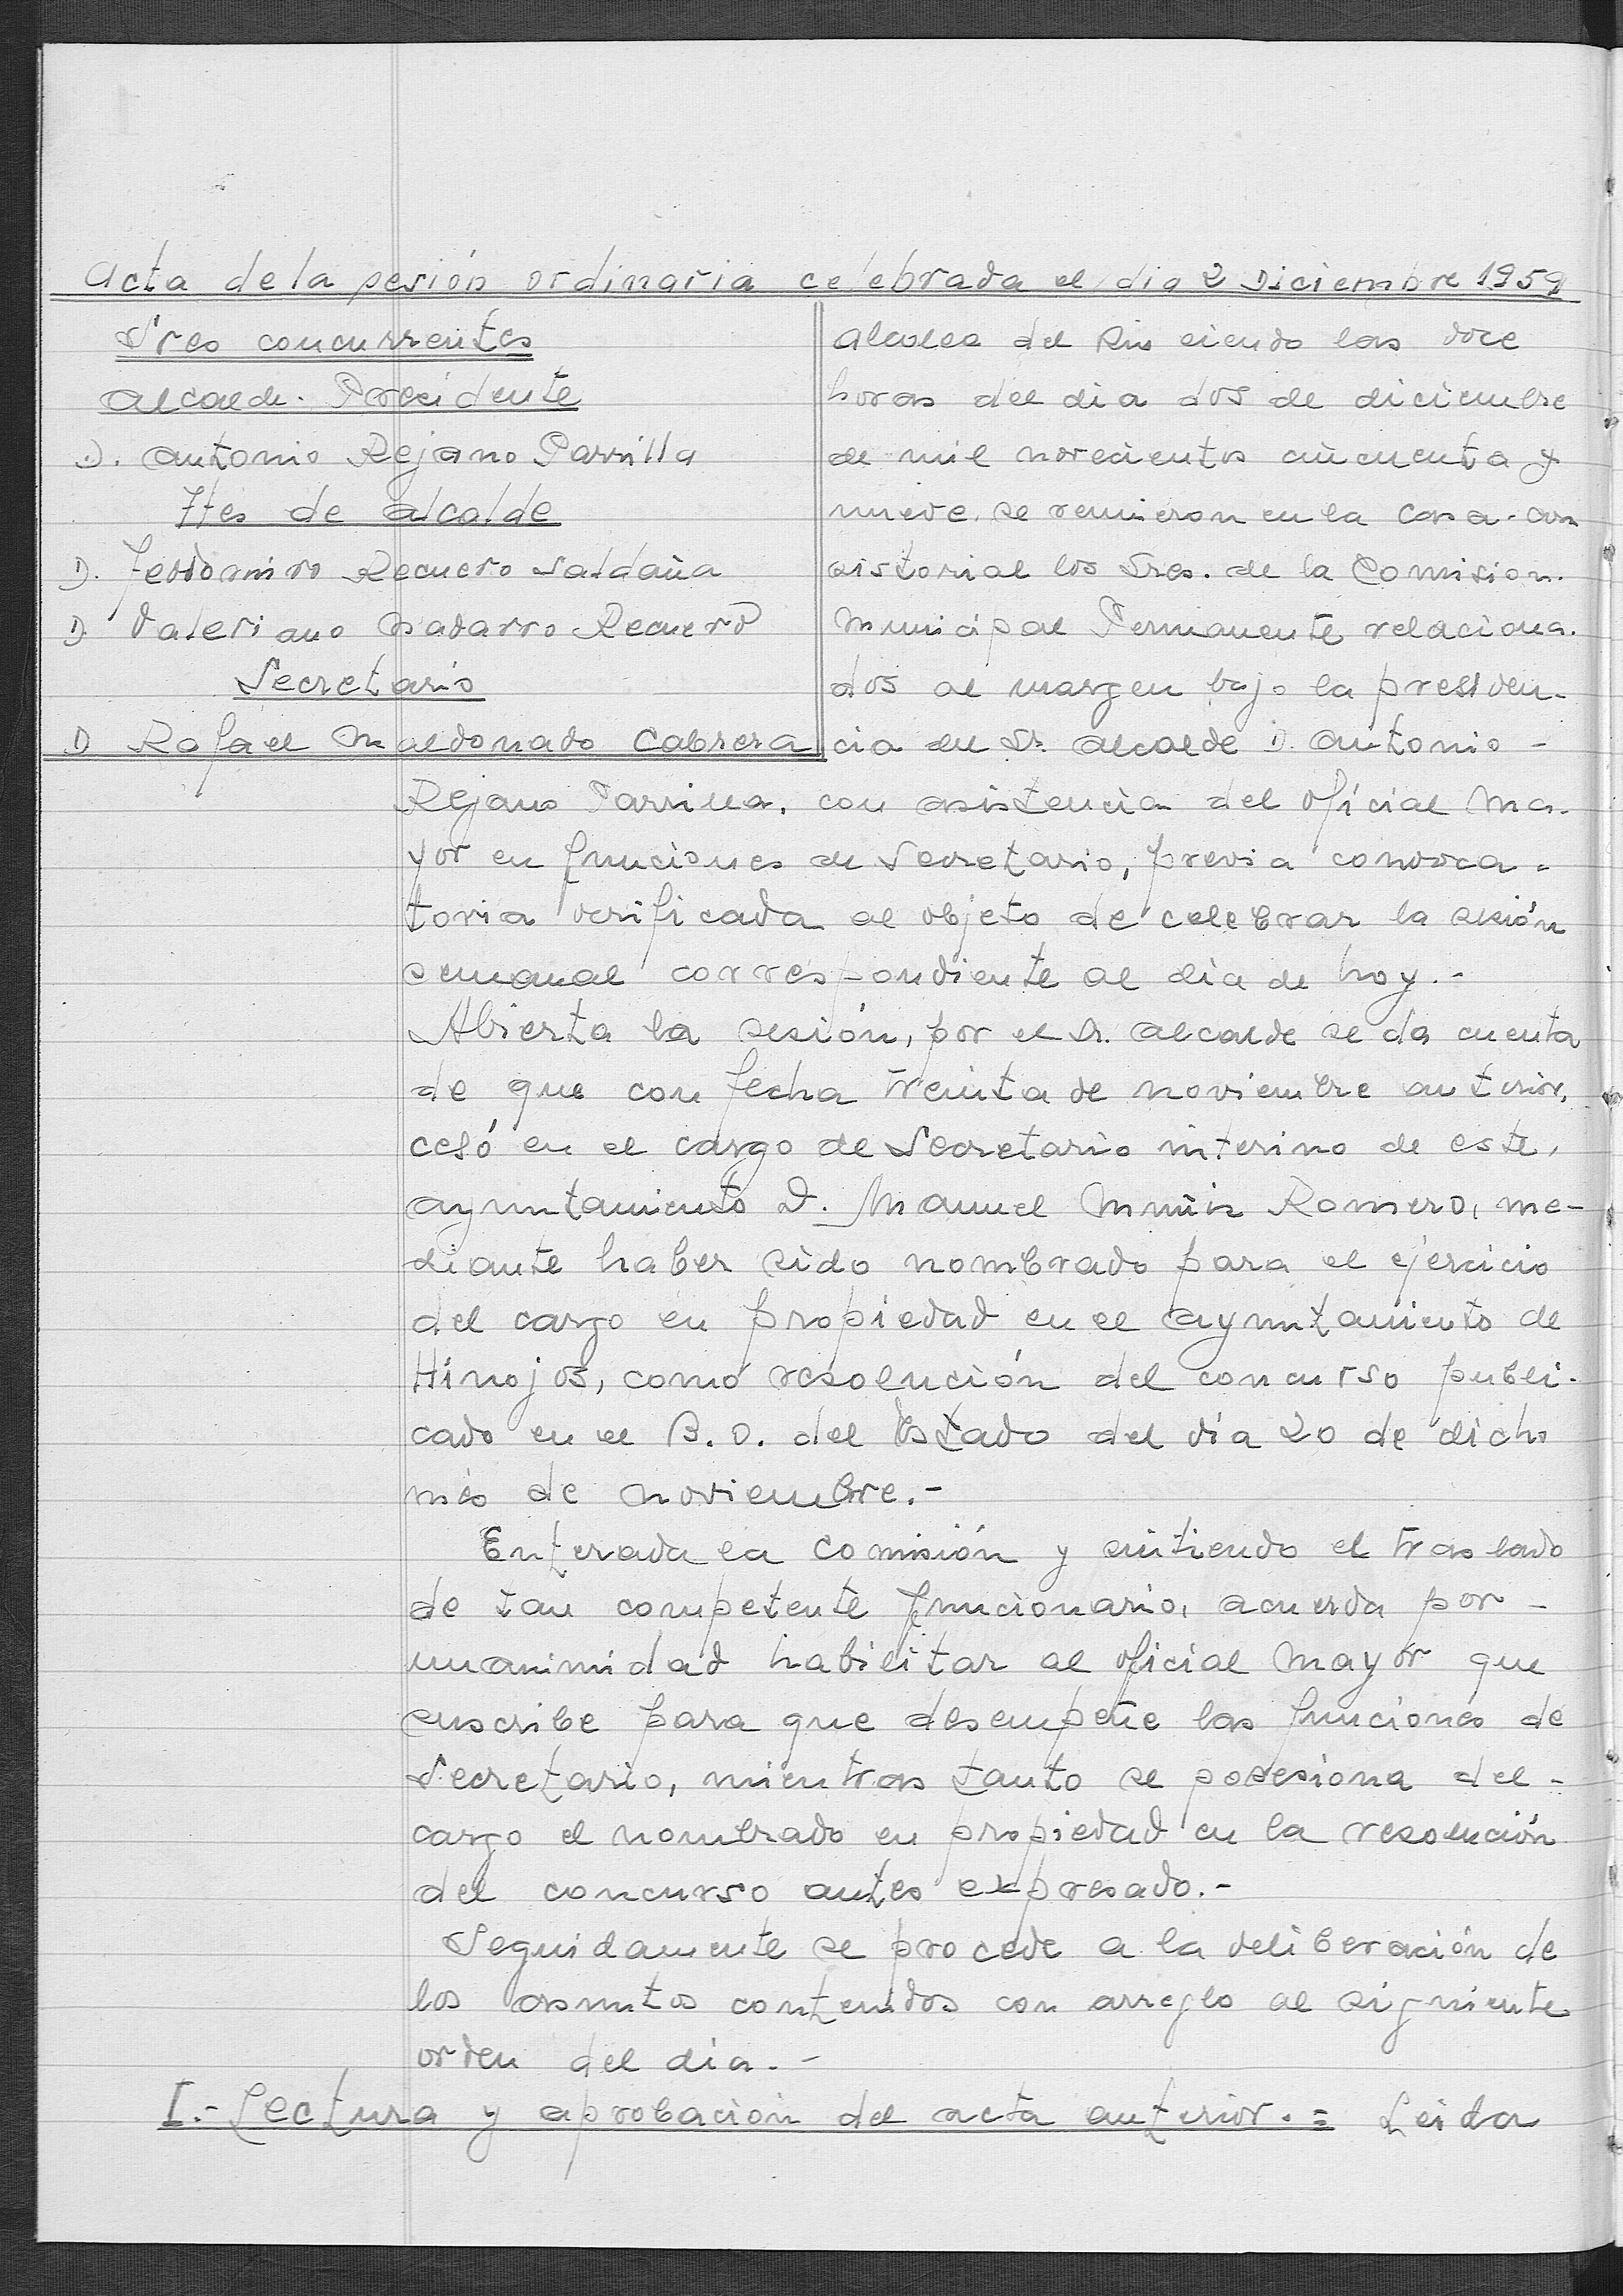 Acta de la sesión ordinaria celebrada el dia 2 Diciembre 1959
Sres concurrentes
Alcalde. Presidente
D. Antonio Rejano Parrilla
Ttes de alcalde
D. Teodomiro Recuero Saldaña
D. Valeriano Nadarro Recuero
Secretario
D Rafael Maldonado Cabrera
Alcolea del Rio siendo las doce
horas del dia dos de diciembre
de mil novecientos cincuenta y
nueve, se reunieron en la Casa-con
sistorial los Sres. de la Comision.
Municipal Permanente relaciona.
dos al margen bajo la presiden-
cia del Sr. Alcalde D. Antonio -
Rejano Parrilla, con asistencia del oficial Ma-
yor en funciones de Secretario, previa convoca-
toria verificada al objeto de celebrar la sesión
semanal correspondiente al dia de hoy.-
Abierta la sesión, por el Sr. Alcalde se da cuenta
de que con fecha treinta de noviembre anterior,
cesó en el cargo de Secretario interino de este,
ayuntamiento D. Manuel Muñiz Romero, me-
diante haber sido nombrado para el ejercicio
del cargo en propiedad en el ayuntamiento de
Hinojos, como resolución del concurso publi-
cado en el B.O. del Estado del día 20 de dicho
mes de noviembre.-
Enterada la Comisión y sintiendo el traslado
de tan competente funcionario, acuerda por -
unanimidad habilitar al oficial Mayor que
suscribe para que desempeñe las funciones de
Secretario, mientras tanto se posesiona del -
cargo el nombrado en propiedad en la resolución
del concurso antes expresado.-
Seguidamente se procede a la deliberación de
los asuntos contenidos con arreglo al siguiente
orden del dia.-
I.- Lectura y aprobación del acta anterior.= Leida